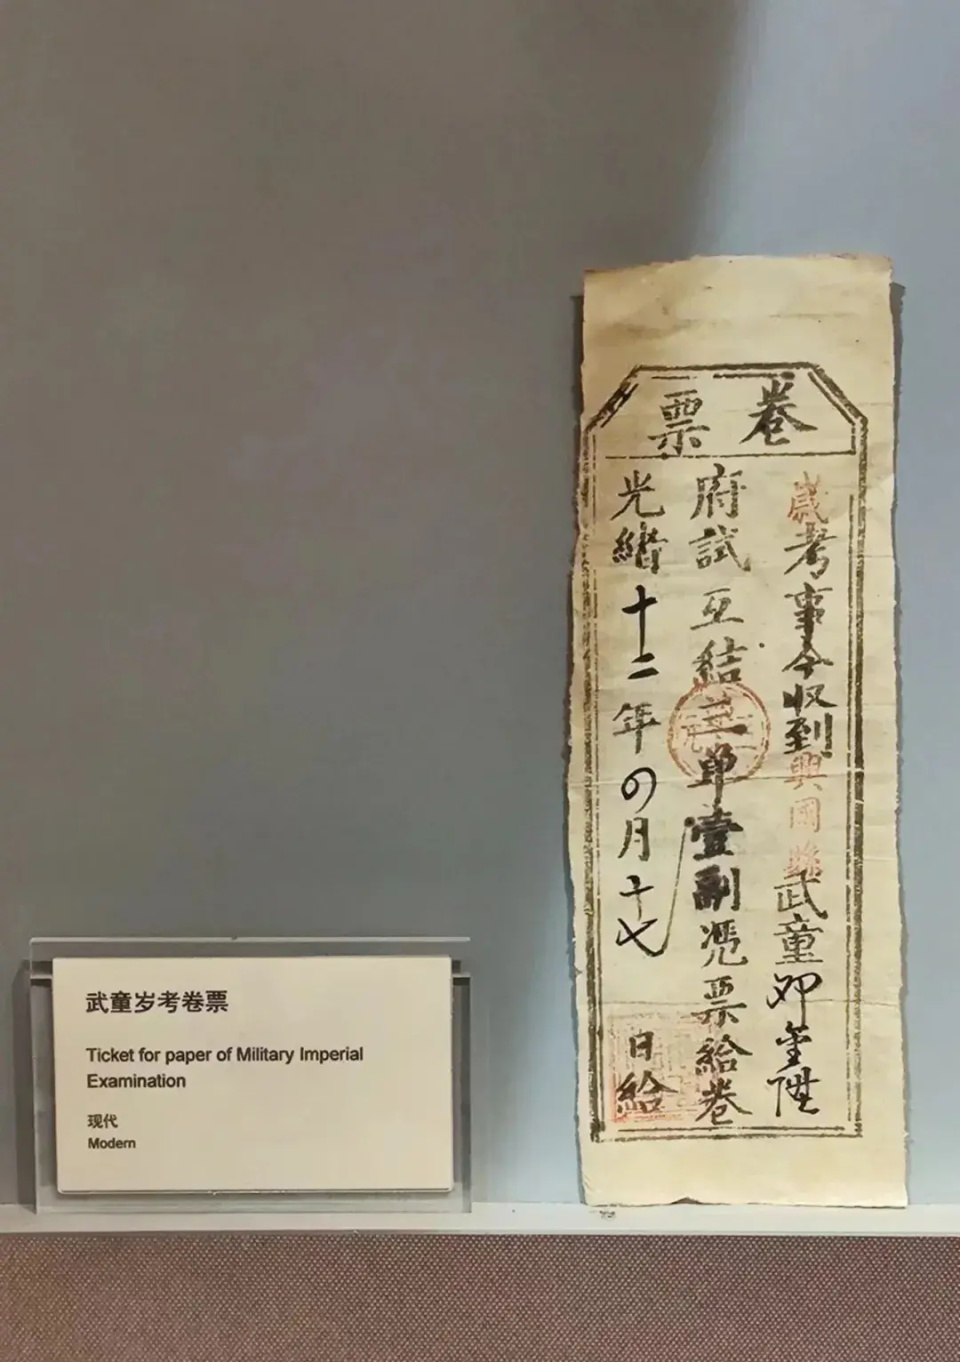 卷票
歲考事今收到興國縣武童邓金陞
府試互結三節壹副憑票給卷
光緒十二年四月十七日給
武童岁考卷票
Ticket for paper of Military Imperial
Examination
现代
Modern